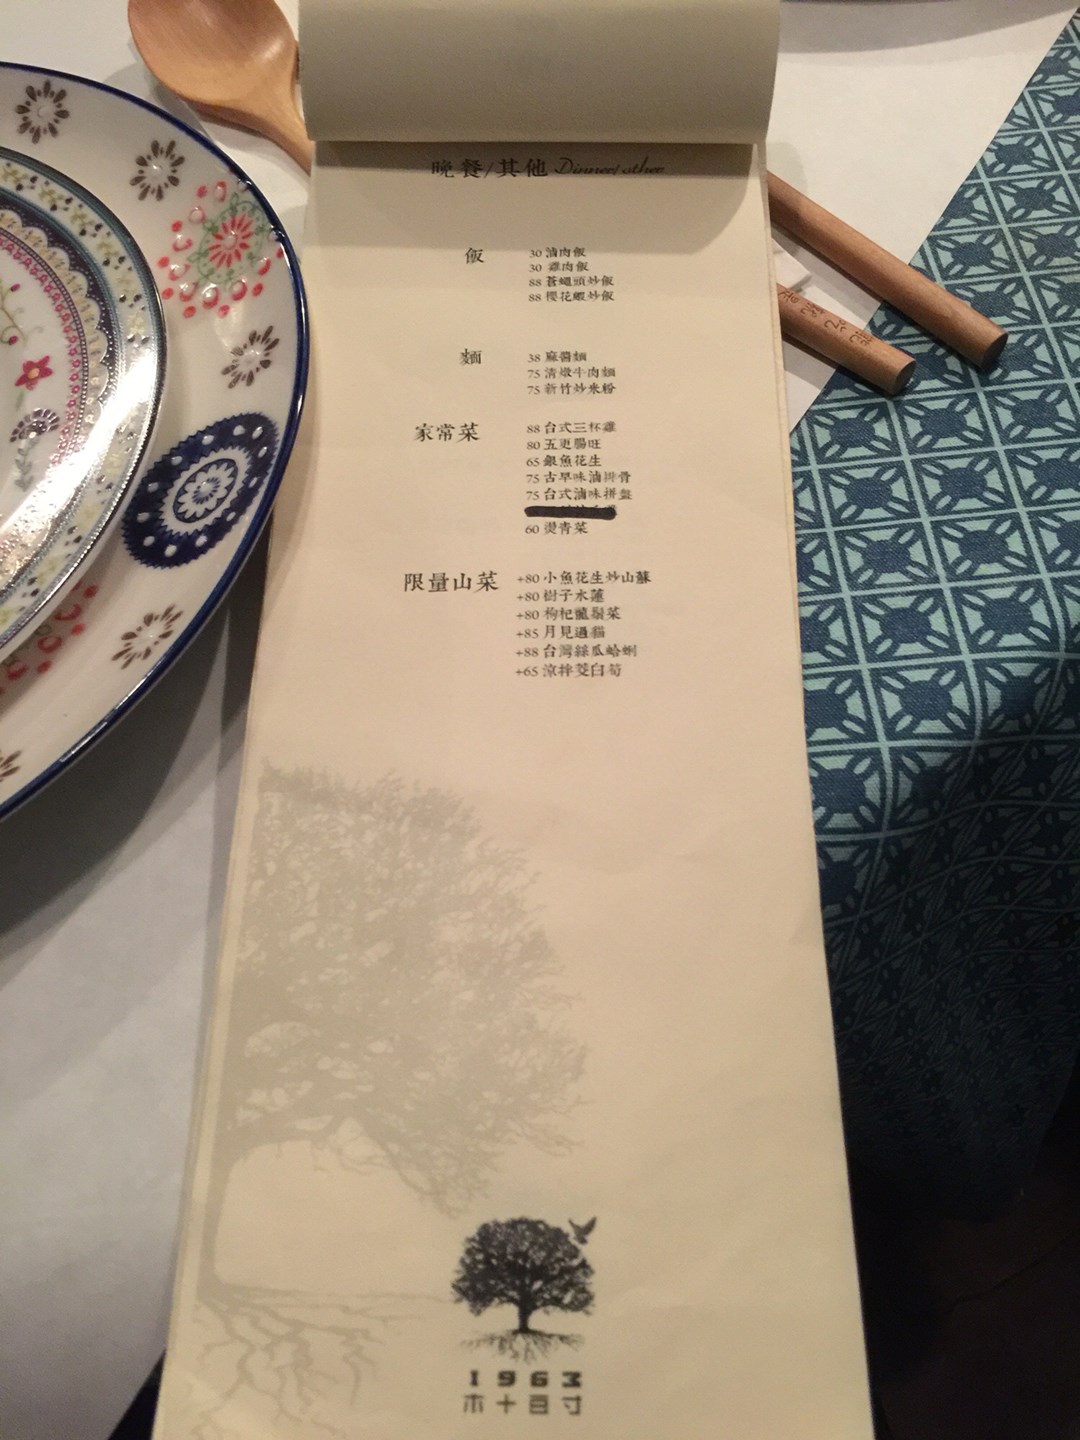 晚餐/其他 Dinner/other
飯
30 滷肉飯
30 雞肉飯
88 蒼蠅頭炒飯
88 櫻花蝦炒飯
麵
38 麻醬麵
75 清燉牛肉麵
75 新竹炒米粉
家常菜
88 台式三杯雞
80 五更腸旺
65 銀魚花生
75 古早味滷排骨
75 台式滷味拼盤
60 燙青菜
限量山菜
+80 小魚花生炒山蘇
+80 樹子水蓮
+80 枸杞龍鬚菜
+85 月見過貓
+88 台灣絲瓜蛤蜊
+65 涼拌茭白筍
1963